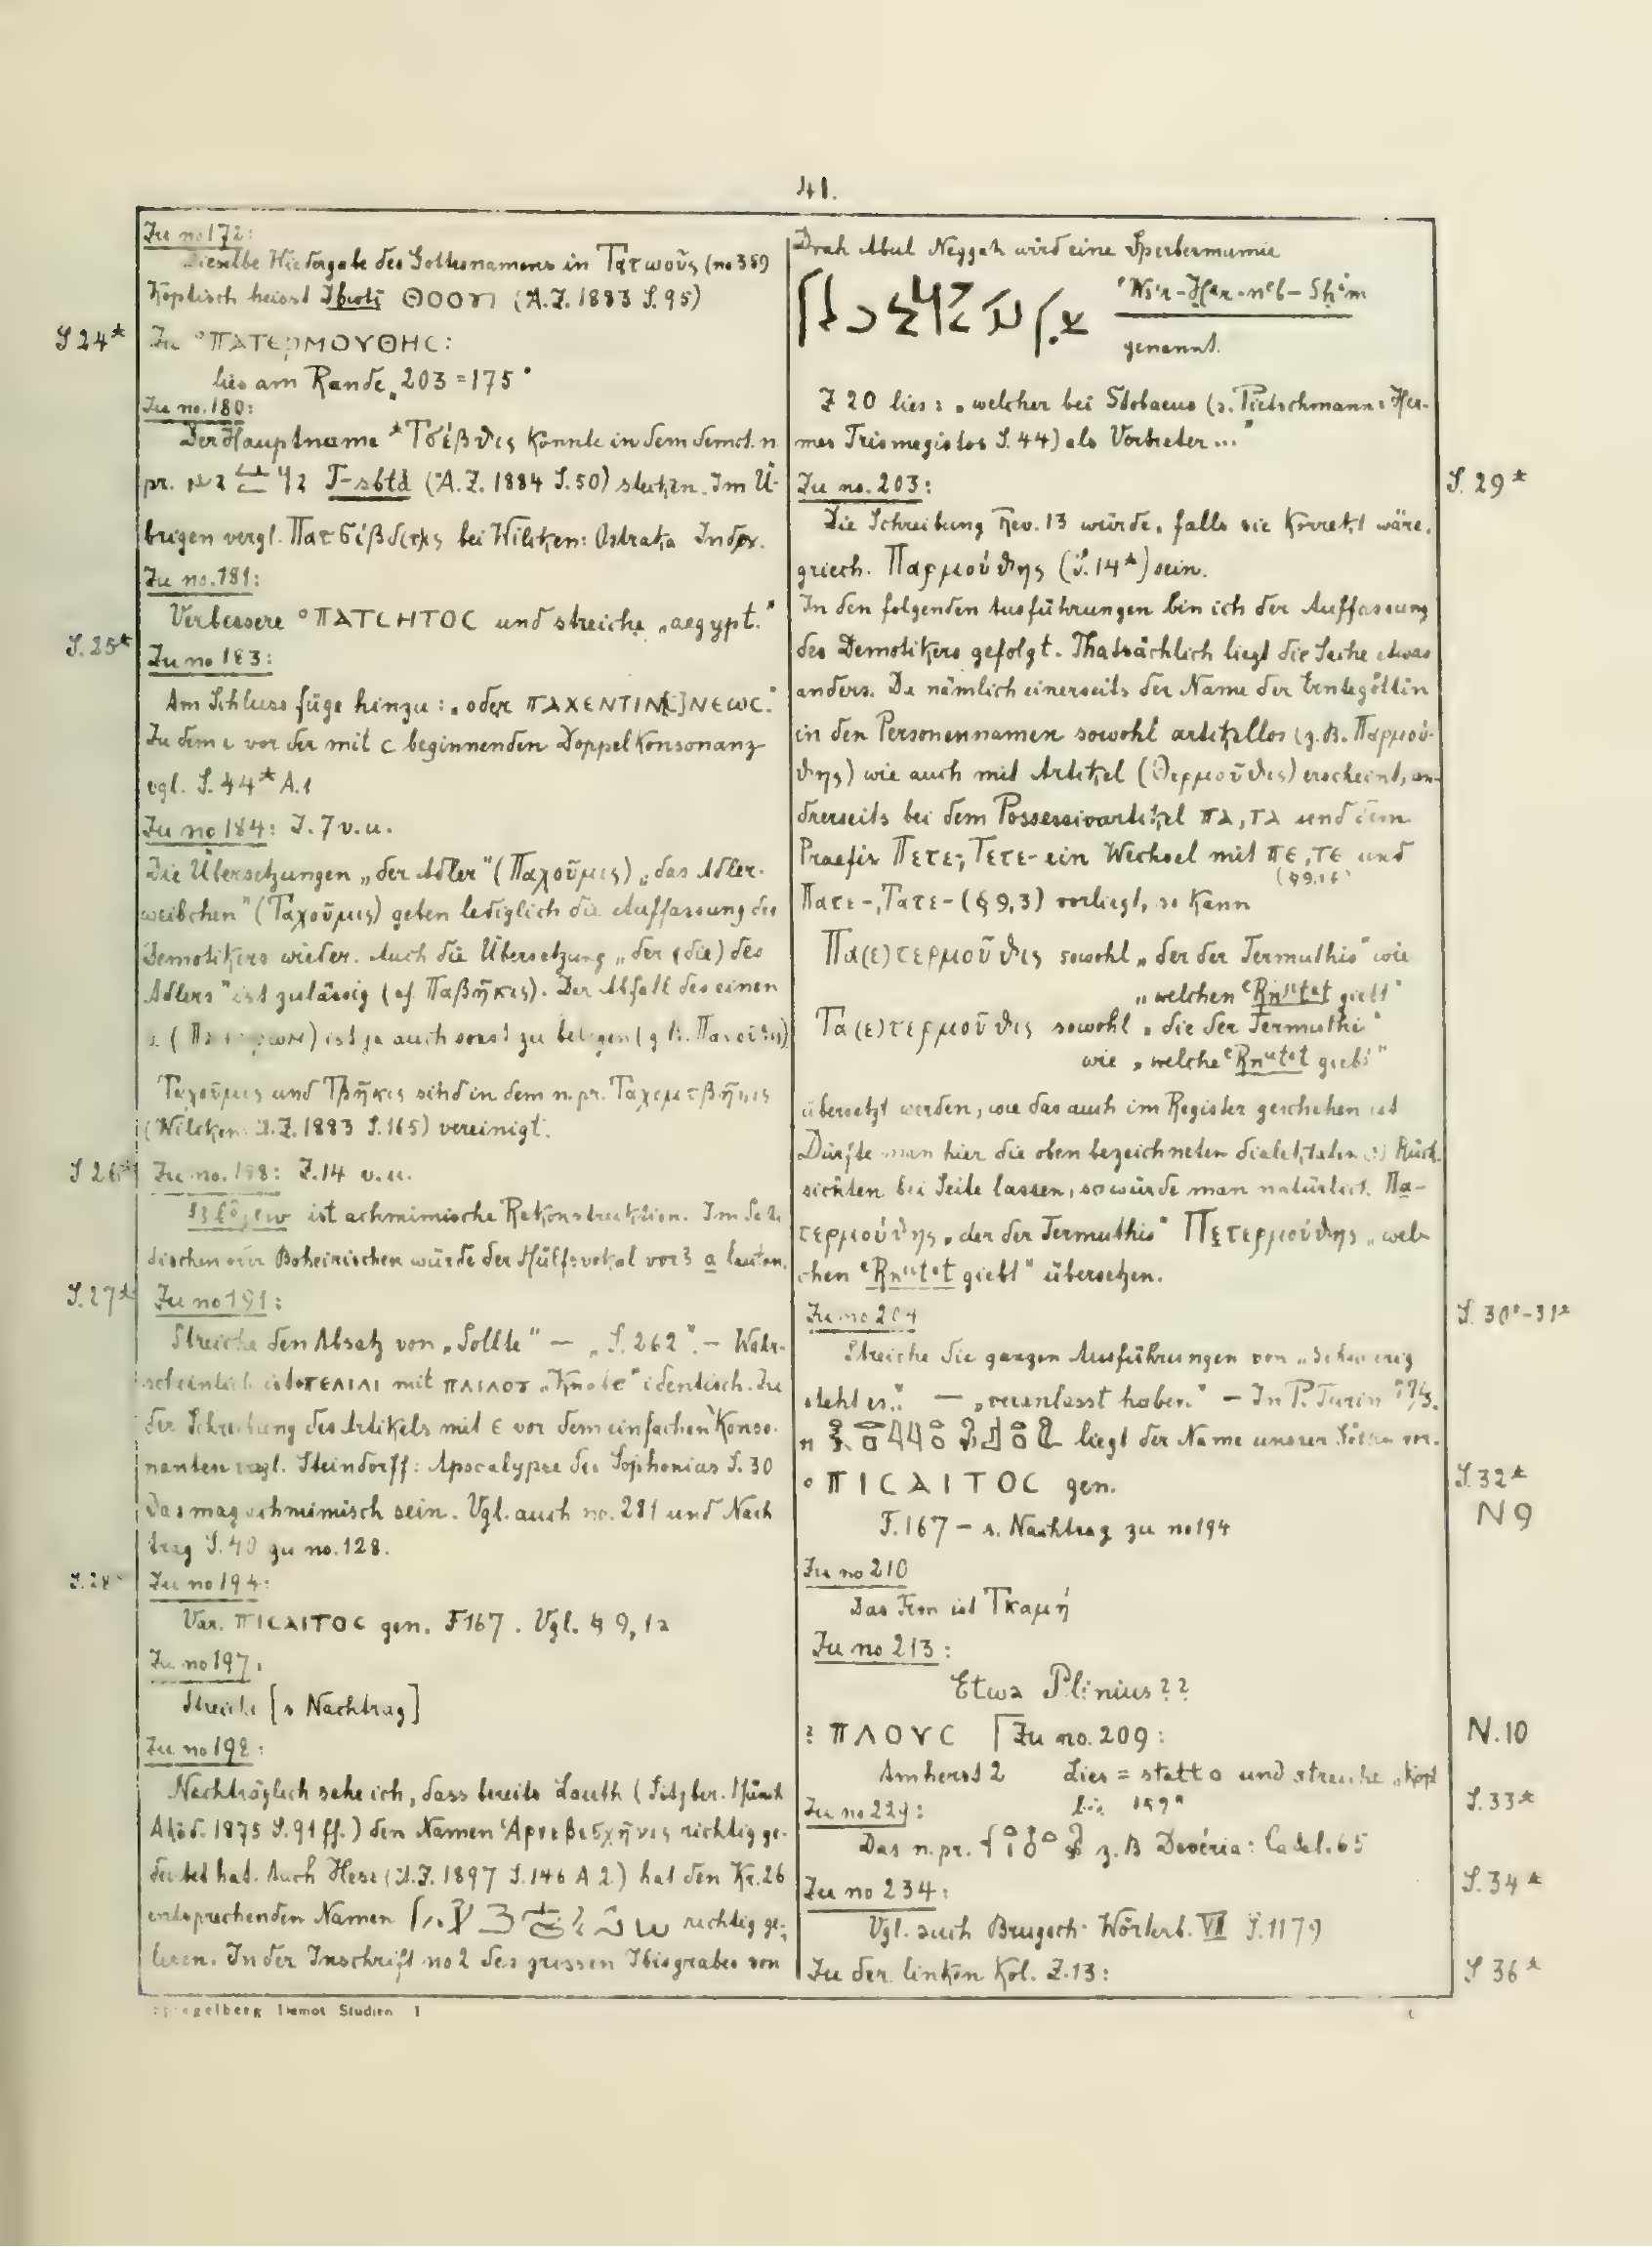 41.
Zu no 172:
Dieselbe Wiedergabe des Gottesnamens in Τατωοῦς (no 359
Koptisch heisst Ibioti ΘΟΟΥΤ (A.Z. 1883 S. 95)
S 24*
Zu °ΠΑΤΕΡΜΟΥΘΗС:
lies am Rande „203 = 175"
Zu no. 180:
Der Hauptname *Τσέβθις könnte in dem demot. n.
pr. T-sbtd (A.Z. 1884 S. 50) stecken. Im Ü-
brigen vergl. bei Wilcken: Ostraka Index.
Zu no. 181:
Verbessere °ΠΑΤСΗΤΟС und streiche „aegypt."
S. 25*
Zu no 183:
Am Schluss füge hinzu: „oder
Zu dem ε vor der mit c beginnenden Doppelkonsonanz
vgl. S. 44* A.1
Zu no 184: Z. 7 v. u.
Die Übersetzungen „der Adler" (Παχοῦμις) „das Adler-
weibchen" (Ταχοῦμις) geben lediglich die Auffassung des
Demotikers wieder. Auch die Übersetzung „der (die) des
Adlers" ist zulässig (cf Παβῆκις). Der Abfall des einen
ist ja auch sonst zu belegen
Ταχοῦμις und Τβῆκις sind in dem n. pr.
(Wilcken: A.Z. 1883 S. 165) vereinigt.
S 26*
Zu no. 188: Z. 14 v. u.
ist achmimische Rekonstruktion. Im Sa'i-
dischen oder Boheirischen würde der Hülfsvokal vor 3 a lauten.
S. 27*
Zu no 191:
Streiche den Absatz von „Sollte" — „S. 262". — Wahr-
scheinlich ist mit „Knabe" identisch. Zu
der Schreibung des Artikels mit ε vor dem einfachen Konso-
nanten vergl. Steindorff: Apocalypse des Sophonias S. 30
Das mag achmimisch sein. Vgl. auch no. 281 und Nach
trag S. 40 zu no. 128.
S. 28*
Zu no 194:
Var. ΠΙСΑΙΤΟС gen. F 167. Vgl. § 9, 1a
Zu no 197.
Streiche [s Nachtrag]
Zu no 198:
Nachträglich sehe ich, dass bereits Lauth (Sitzber. Münch
Akad. 1875 S. 91 ff.) den Namen richtig ge-
deutet hat. Auch Hess (A.Z. 1897 S. 146 A 2) hat den Kr. 26
entsprechenden Namen richtig ge-
lesen. In der Inschrift no 2 des grossen Ibisgrabes von
Spiegelberg Demot Studien I
Drah Abul Neggah wird eine Sperbermumie
genannt.
Z 20 lies: „welcher bei Stobaeus (s. Pietschmann: Her-
mes Trismegistos S. 44) als Vertreter..."
S. 29*
Zu no. 203:
Die Schreibung Rev. 13 würde, falls sie korrekt wäre,
griech. Παρμούθης (S. 14*) sein.
In den folgenden Ausführungen bin ich der Auffassung
des Demotikers gefolgt. Thatsächlich liegt die Sache etwas
anders. Da nämlich einerseits der Name der Erntegöttin
in den Personennamen sowohl artikellos (z. B. Παρμού-
θης) wie auch mit Artikel (Θερμοῦθις) erscheint, an-
drerseits bei dem Possessivartikel ΠΑ, ΤΑ und dem
Praefix Πετε-, Τετε- ein Wechsel mit ΠΕ, ΤΕ und
(§ 9.16)
Πατε-, Τατε- (§ 9, 3) vorliegt, so kann
Πα(ε)τερμοῦθις sowohl „der der Termuthis" wie
„welchen giebt"
Τα(ε)τερμοῦθις sowohl „die der Termuthi"
wie „welche giebt"
übersetzt werden, wie das auch im Register geschehen ist
Dürfte man hier die oben bezeichneten dialektalen Rück-
sichten bei Seite lassen, so würde man natürlich Πα-
τερμούθης „der der Termuthis" Πετερμούθης „wel-
chen giebt" übersetzen.
S. 30*-31*
Zu no 204
Streiche die ganzen Ausführungen von „Schwierig
steht es." — „veranlasst haben." — In P. Turin
liegt der Name unserer vor.
S. 32*
° ΠΙСΑΙΤΟС gen.
N 9
F. 167 — s. Nachtrag zu no 194
Zu no 210
Das Fem ist Τκαμή
Zu no 213:
Etwa Plinius??
? ΠΛΟΥС ⌈Zu no. 209:
N. 10
Amherst 2 Lies = statt o und streiche „kopt
bis 159"
S. 33*
Zu no 229:
Das n. pr. z. B Devéria: Catal. 65
S. 34*
Zu no 234:
Vgl. auch Brugsch Wörterb. VII S. 1179
S 36*
Zu der linken Kol. Z. 13: